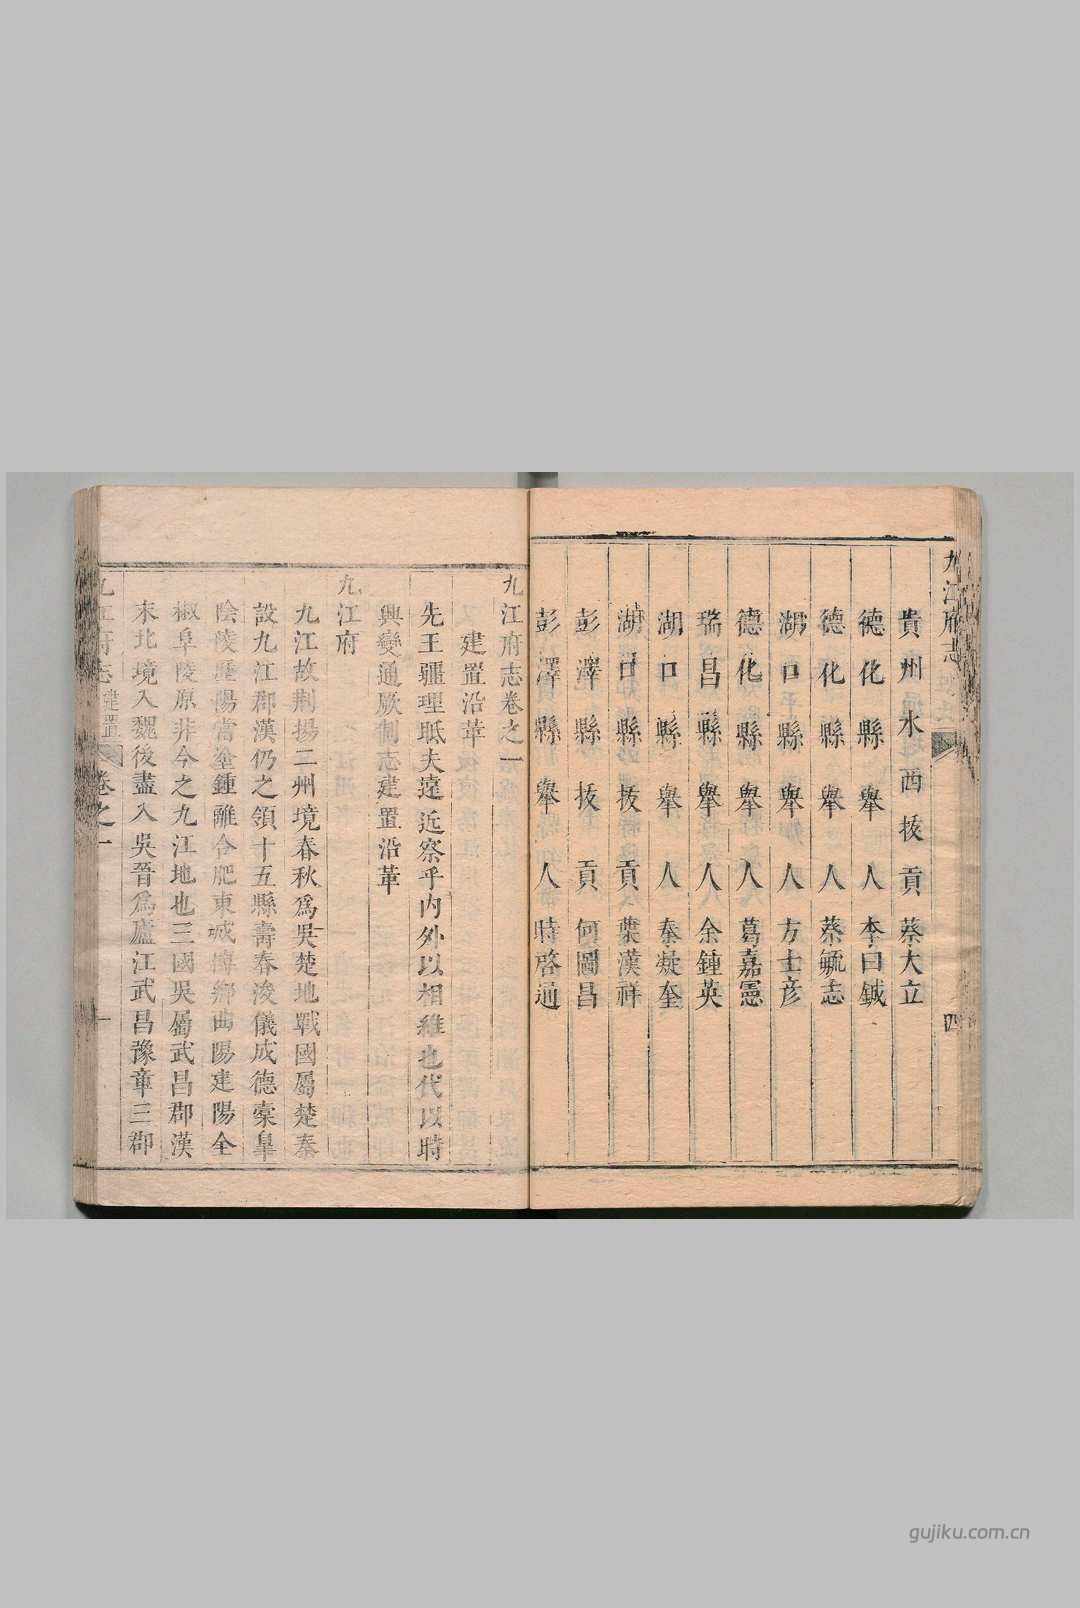 九江府志
四
貴州水西拔貢蔡大立
德化縣舉人李曰鋮
德化縣舉人蔡毓志
湖口縣舉人方士彦
德化縣舉人葛嘉憲
瑞昌縣舉人余鍾英
湖口縣舉人秦凝奎
湖口縣拔貢葉漢祥
彭澤縣拔貢何圖昌
彭澤縣舉人時啓通
九江府志卷之一
建置沿革
先王疆理甿夫遠近察乎内外以相維也代以時
興變通厥制志建置沿革
九江府
九江故荆揚二州境春秋爲吳楚地戰國屬楚秦
設九江郡漢仍之領十五縣壽春浚儀成德橐皐
陰陵歷陽當塗鍾離合肥東城博鄉曲陽建陽全
椒阜陵原非今之九江地也三國吳屬武昌郡漢
末北境入魏後盡入吳晉爲廬江武昌豫章三郡
九江府志
建置
卷之一
一
gujiku.com.cn